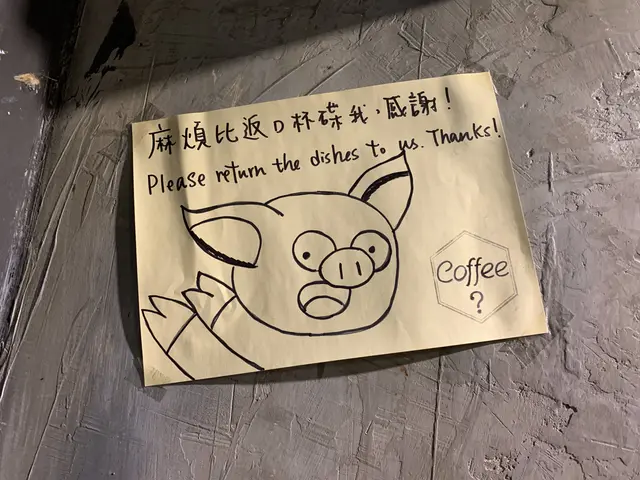 麻煩比返D杯碟我，感謝！
Please return the dishes to us. Thanks!
Coffee
?